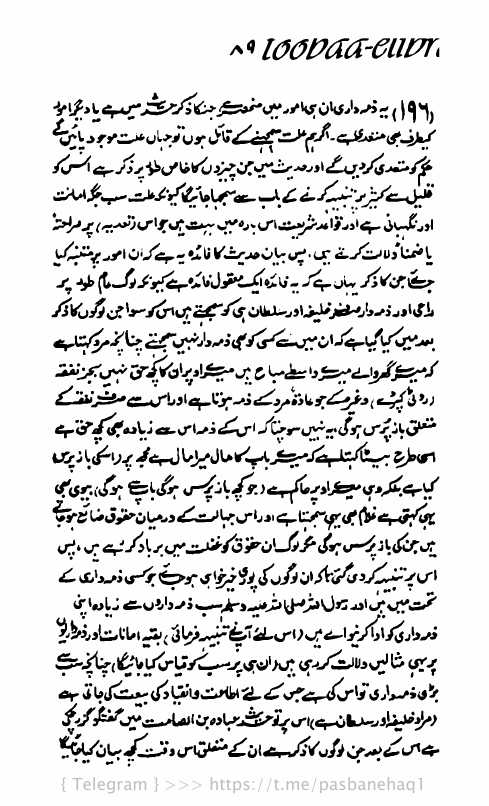 ۸۹ toobaa-elibra
(۱۹۶) یہ ذمہ داری ان ہی امور میں منحصر ہے جنکا ذکر حدیث میں ہے یا دیگر امور
کیطرف بھی متعدی ہے۔ اگر ہم علت سمجھنے کے قائل ہوں تو جہاں علت موجود پائیں گے
حکم کو متعدی کر دیں گے اور حدیث میں جن چیزوں کا خاص طور پر ذکر ہے اس کو
قلیل سے کثیر پر تنبیہ کرنے کے باب سے سمجھا جائیگا کیونکہ علت سب جگہ امانت
اور نگہبانی ہے اور قواعد شریعت اس بارہ میں بہت ہیں جو اس (تعدیہ) پر صراحۃً
یا ضمناً دلالت کرتے ہیں۔ پس بیان حدیث کا فائدہ یہ ہے کہ ان امور پر متنبہ کیا
جائے جن کا ذکر یہاں ہے کہ یہ فائدہ ایک معقول فائدہ ہے کیونکہ لوگ عام طور پر
راعی اور ذمہ دار صرف خلیفہ اور سلطان ہی کو سمجھتے ہیں اس کو سوا جن لوگوں کا ذکر
بعد میں کیا گیا ہے کہ ان میں سے کسی کو بھی ذمہ دار نہیں سمجھتے چنانچہ مرد کہتا ہے
کہ میرے گھر والے میرے واسطے مباح ہیں میرے اوپر ان کا کچھ حق نہیں بجز نفقہ
(روٹی کپڑے) وغیرہ کے جو عادۃ مرد کے ذمہ ہوتا ہے اور اس سے صرف نفقہ کے
متعلق باز پرس ہوگی یہ نہیں سوچتا کہ اس کے ذمہ اس سے زیادہ بھی کچھ حق ہے
اسی طرح بیٹا کہتا ہے کہ میرے باپ کا مال میرا مال ہے مجھ پر (اسکی باز پرس)
کیا ہے بلکہ وہی میرے اوپر حاکم ہے (جو کچھ باز پرس ہوگی باپ سے ہوگی) بیوی بھی
یہی کہتی ہے غلام بھی یہی سمجھتا ہے اور اس جہالت کے درمیان حقوق ضائع ہو جاتے
ہیں جن کی باز پرس ہوگی مگر لوگ ان حقوق کو غفلت میں برباد کر رہے ہیں، پس
اس پر تنبیہ کر دی گئی تاکہ ان لوگوں کی پوری خیر خواہی ہو جائے جو کسی ذمہ داری کے
تحت میں ہیں اور رسول اللہ صلی اللہ علیہ وسلم سب ذمہ داروں سے زیادہ اپنی
ذمہ داری کو ادا کرنیوالے ہیں (اس لئے آپنے تنبیہ فرمائی) بقیہ امانات اور ذمہ داریوں
پر یہی مثالیں دلالت کر رہی ہیں (ان ہی پر سب کو قیاس کیا جائیگا) چنانچہ سب سے
بڑی ذمہ داری تو اس کی ہے جس کے لئے اطاعت وانقیاد کی بیعت کی جاتی ہے
(مراد خلیفہ اور سلطان ہے) اس پر تو حدیث عبادہ بن الصامت میں گفتگو گزر چکی
ہے اس کے بعد جن لوگوں کا ذکر ہے ان کے متعلق اس وقت کچھ بیان کیا جائیگا
{ Telegram } >>> https://t.me/pasbanehaq1